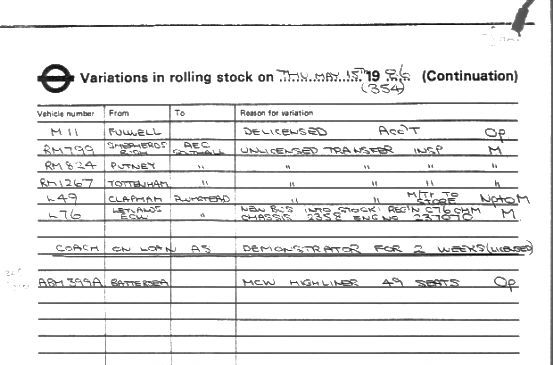 Variations in rolling stock on THU MAY 15TH 1986 (Continuation)
(354)
Vehicle number From To Reason for variation
M 11 FULWELL DELICENSED ACC'T OP
RM799 SHEPHERDS BUSH AEC SOUTHALL UNLICENSED TRANSFER INSP M
RM 824 PUTNEY " " " " "
RM1267 TOTTENHAM " " " " "
L49 CLAPHAM PLUMSTEAD " " M/TR TO STORE M
L76 LEYLANDS ECW " NEW BUS INTO STOCK: REG'N C76CHM
CHASSIS 2358 ENG NO 237070 M
COACH ON LOAN AS DEMONSTRATOR FOR 2 WEEKS (LICENSED)
399A BATTERSEA MCW HIGHLINER 49 SEATS OP